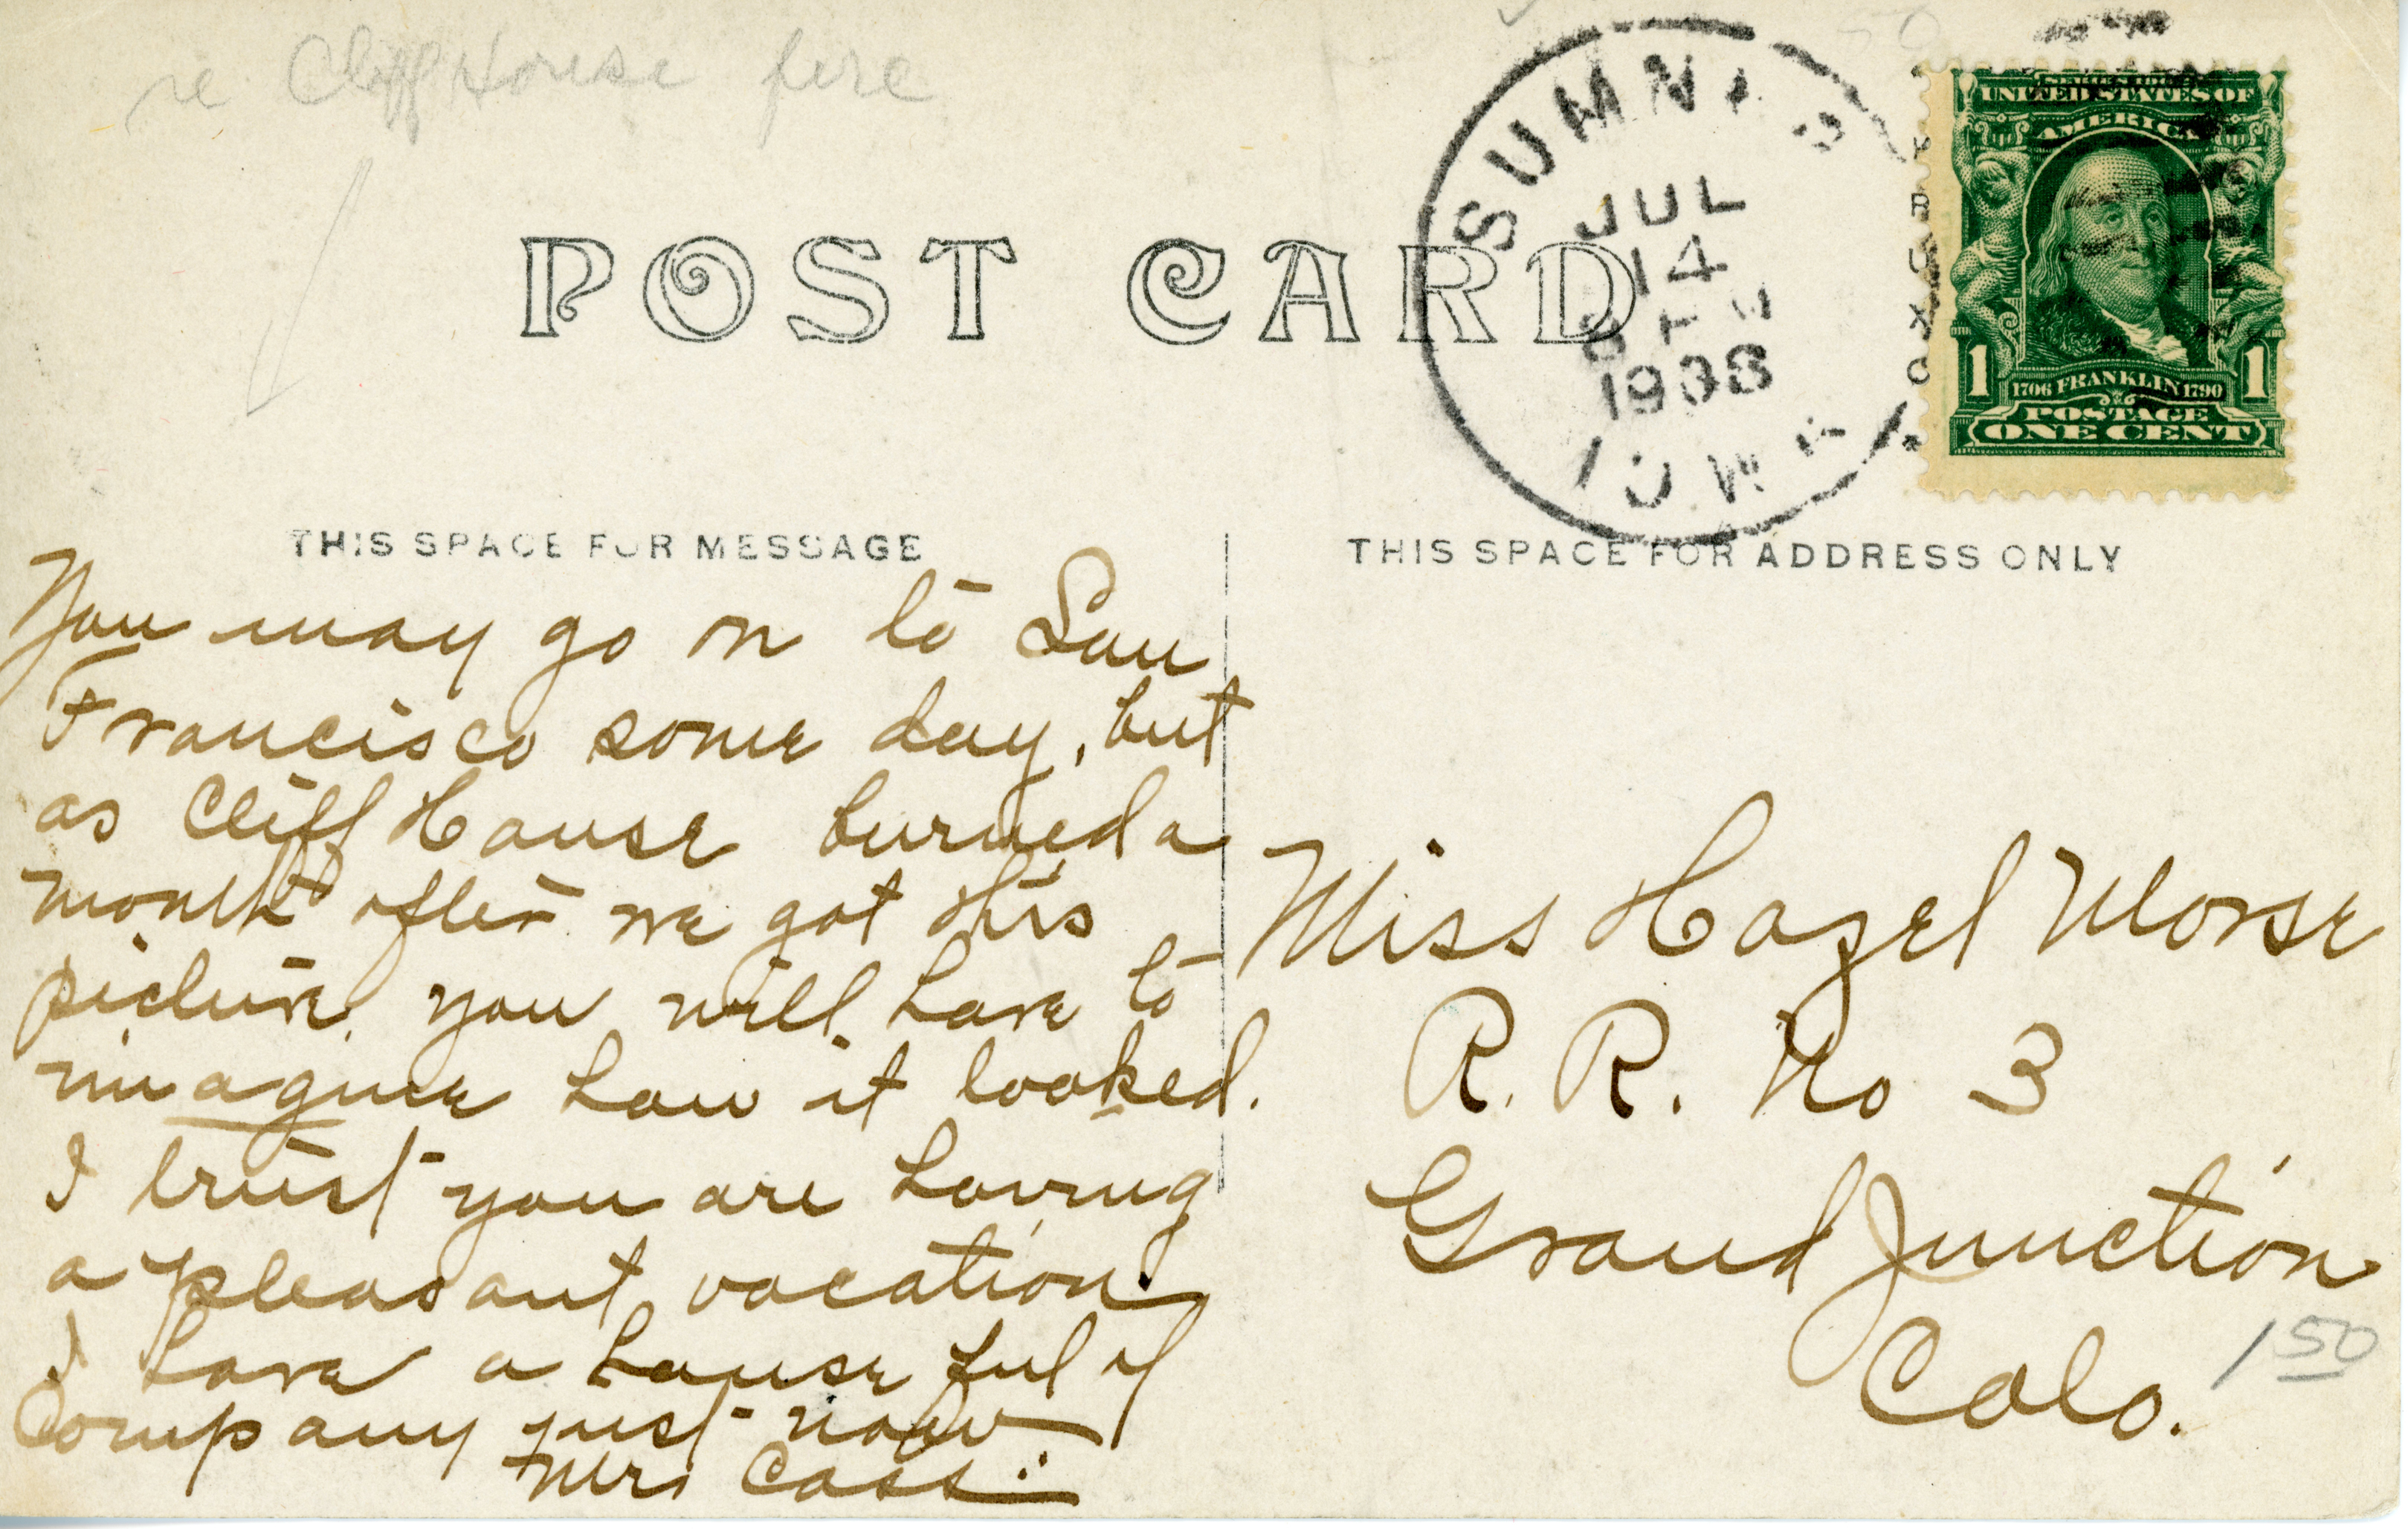 re Cliff House fire
POST CARD
SUMNER
JUL
14
1908
IOWA
SERIES 1902
UNITED STATES OF
AMERICA
1 1
1706 FRANKLIN 1790
POSTAGE
ONE CENT
THIS SPACE FOR MESSAGE
You may go on to San
Francisco some day, but
as Cliff House burned a
month after we got this
picture, you will have to
imagine how it looked.
I trust you are having
a pleasant vacation.
I have a house ful of
Company just now
Mrs Cass
THIS SPACE FOR ADDRESS ONLY
Miss Hazel Morse
R. R. No 3
Grand Junction
Colo.
1 50